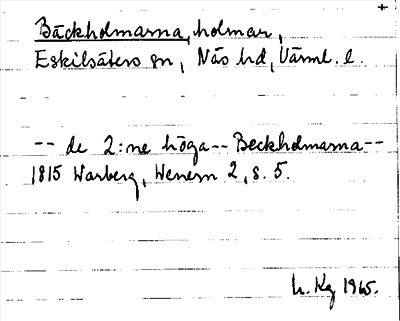 +
Bäckholmarna, holmar,
Eskilsäters sn, Näs hd, Värml. l.
-- de 2:ne höga -- Beckholmarna --
1815 Warberg, Wenern 2, s. 5.
h. Kg 1965.